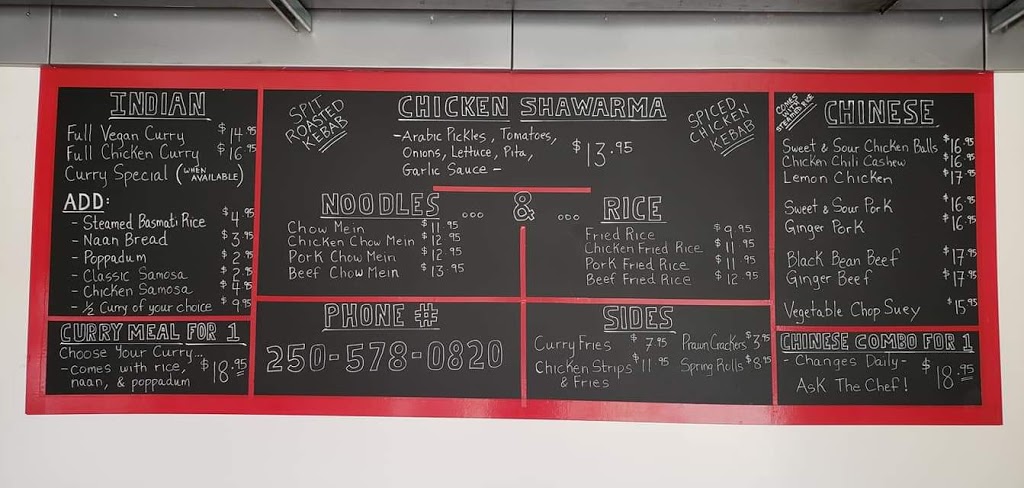 INDIAN
Full Vegan Curry $14.95
Full Chicken Curry $16.95
Curry Special (WHEN AVAILABLE)
ADD:
- Steamed Basmati Rice $4.95
- Naan Bread $3.95
- Poppadum $2.95
- Classic Samosa $2.95
- Chicken Samosa $4.95
- ½ Curry of your choice $9.95
CURRY MEAL FOR 1
Choose Your Curry...
- comes with rice, $18.95
naan, & poppadum
SPIT
ROASTED
KEBAB
CHICKEN SHAWARMA
- Arabic Pickles, Tomatoes,
Onions, Lettuce, Pita, $13.95
Garlic Sauce -
SPICED
CHICKEN
KEBAB
NOODLES ... & ... RICE
Chow Mein $11.95
Chicken Chow Mein $12.95
Pork Chow Mein $12.95
Beef Chow Mein $13.95
Fried Rice $9.95
Chicken Fried Rice $11.95
Pork Fried Rice $11.95
Beef Fried Rice $12.95
PHONE #
250-578-0820
SIDES
Curry Fries $7.95 Prawn Crackers $3.95
Chicken Strips $11.95 Spring Rolls $8.95
& Fries
COMES
WITH
STEAMED RICE
CHINESE
Sweet & Sour Chicken Balls $16.95
Chicken Chili Cashew $16.95
Lemon Chicken $17.95
Sweet & Sour Pork $16.95
Ginger Pork $16.95
Black Bean Beef $17.95
Ginger Beef $17.95
Vegetable Chop Suey $15.95
CHINESE COMBO FOR 1
- Changes Daily - $18.95
Ask The Chef!